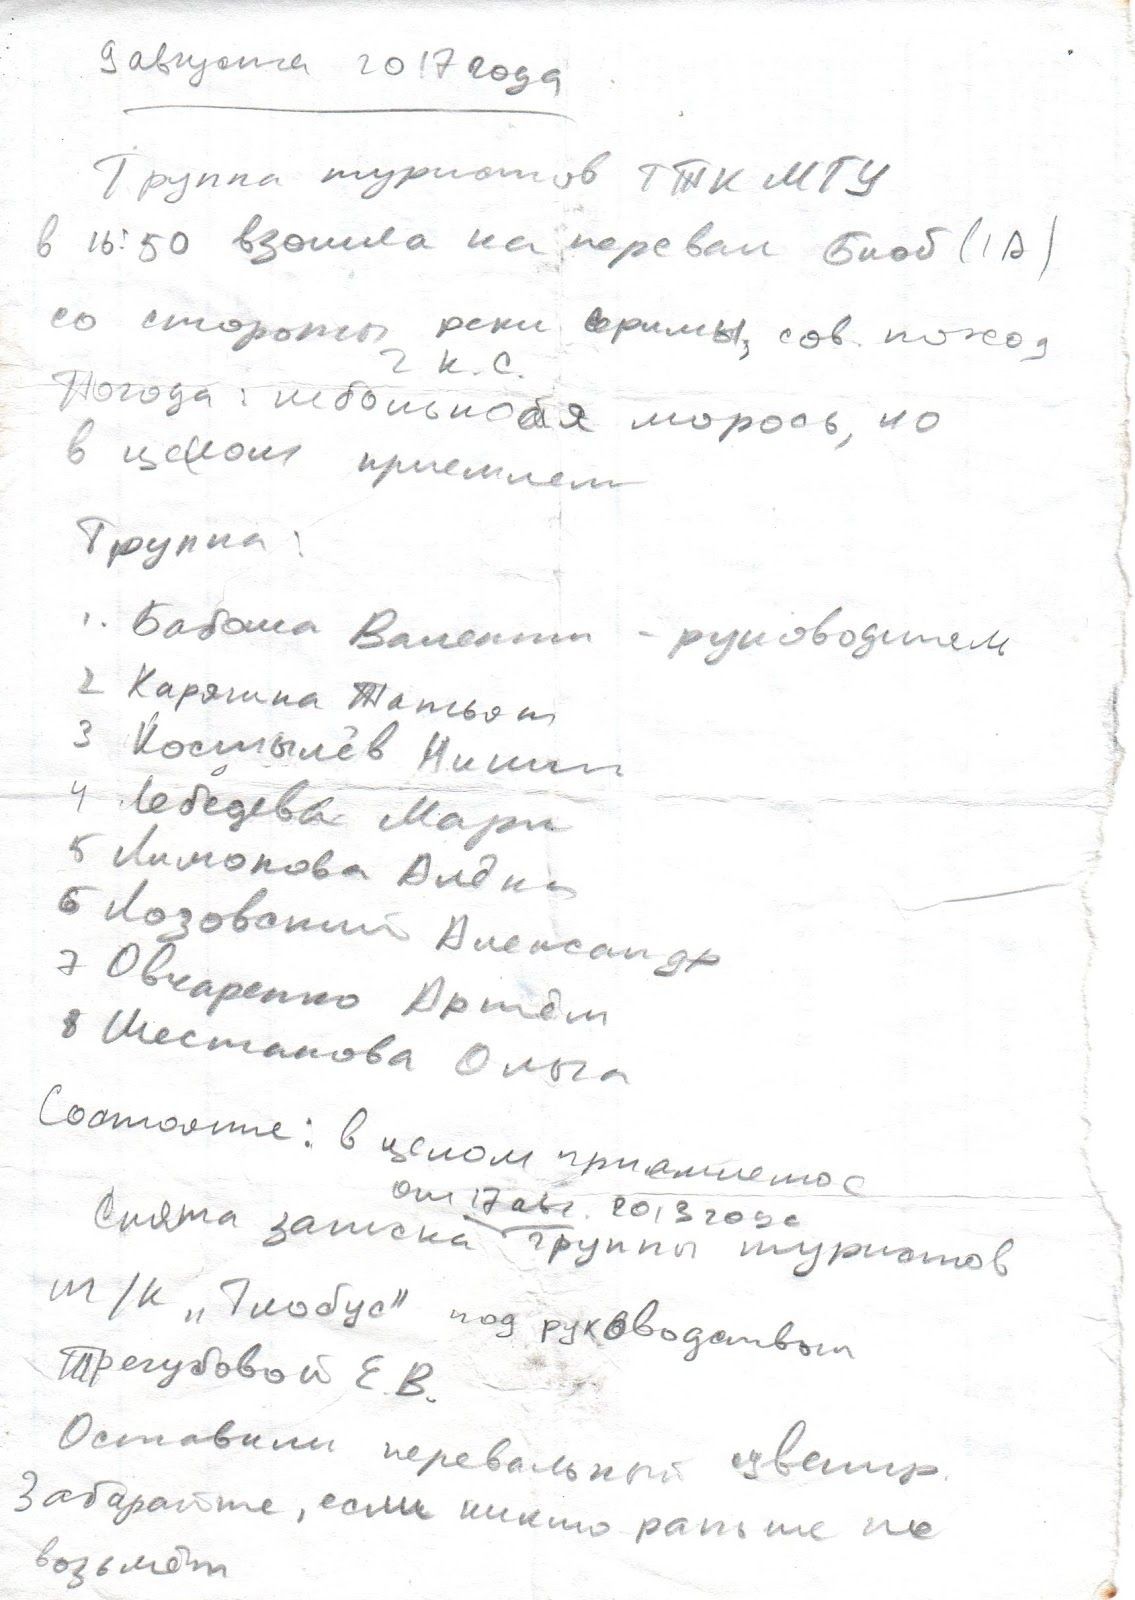 9 августа 2017 года
Группа туристов ТТК МГУ
в 16:50 взошла на перевал (1А)
со стороны реки сов. поход
2 к.с.
Погода: небольшая морось, но
в целом приемлем
Группа:
1. Валентин - руководитель
2 Карягина Татьян
3 Костылёв Никит
4 Лебедева Мари
5 Лимонова Алёна
6 Лозовский Александр
7 Овчаренко Артём
8 Шестакова Ольга
Состояние: в целом приемлемое
от 17 авг. 2013 года
Снята записка группы туристов
т/к „Глобус" под руководством
Трегубовой Е.В.
Оставили перевальный
Забирайте, если никто раньше не
возьмёт